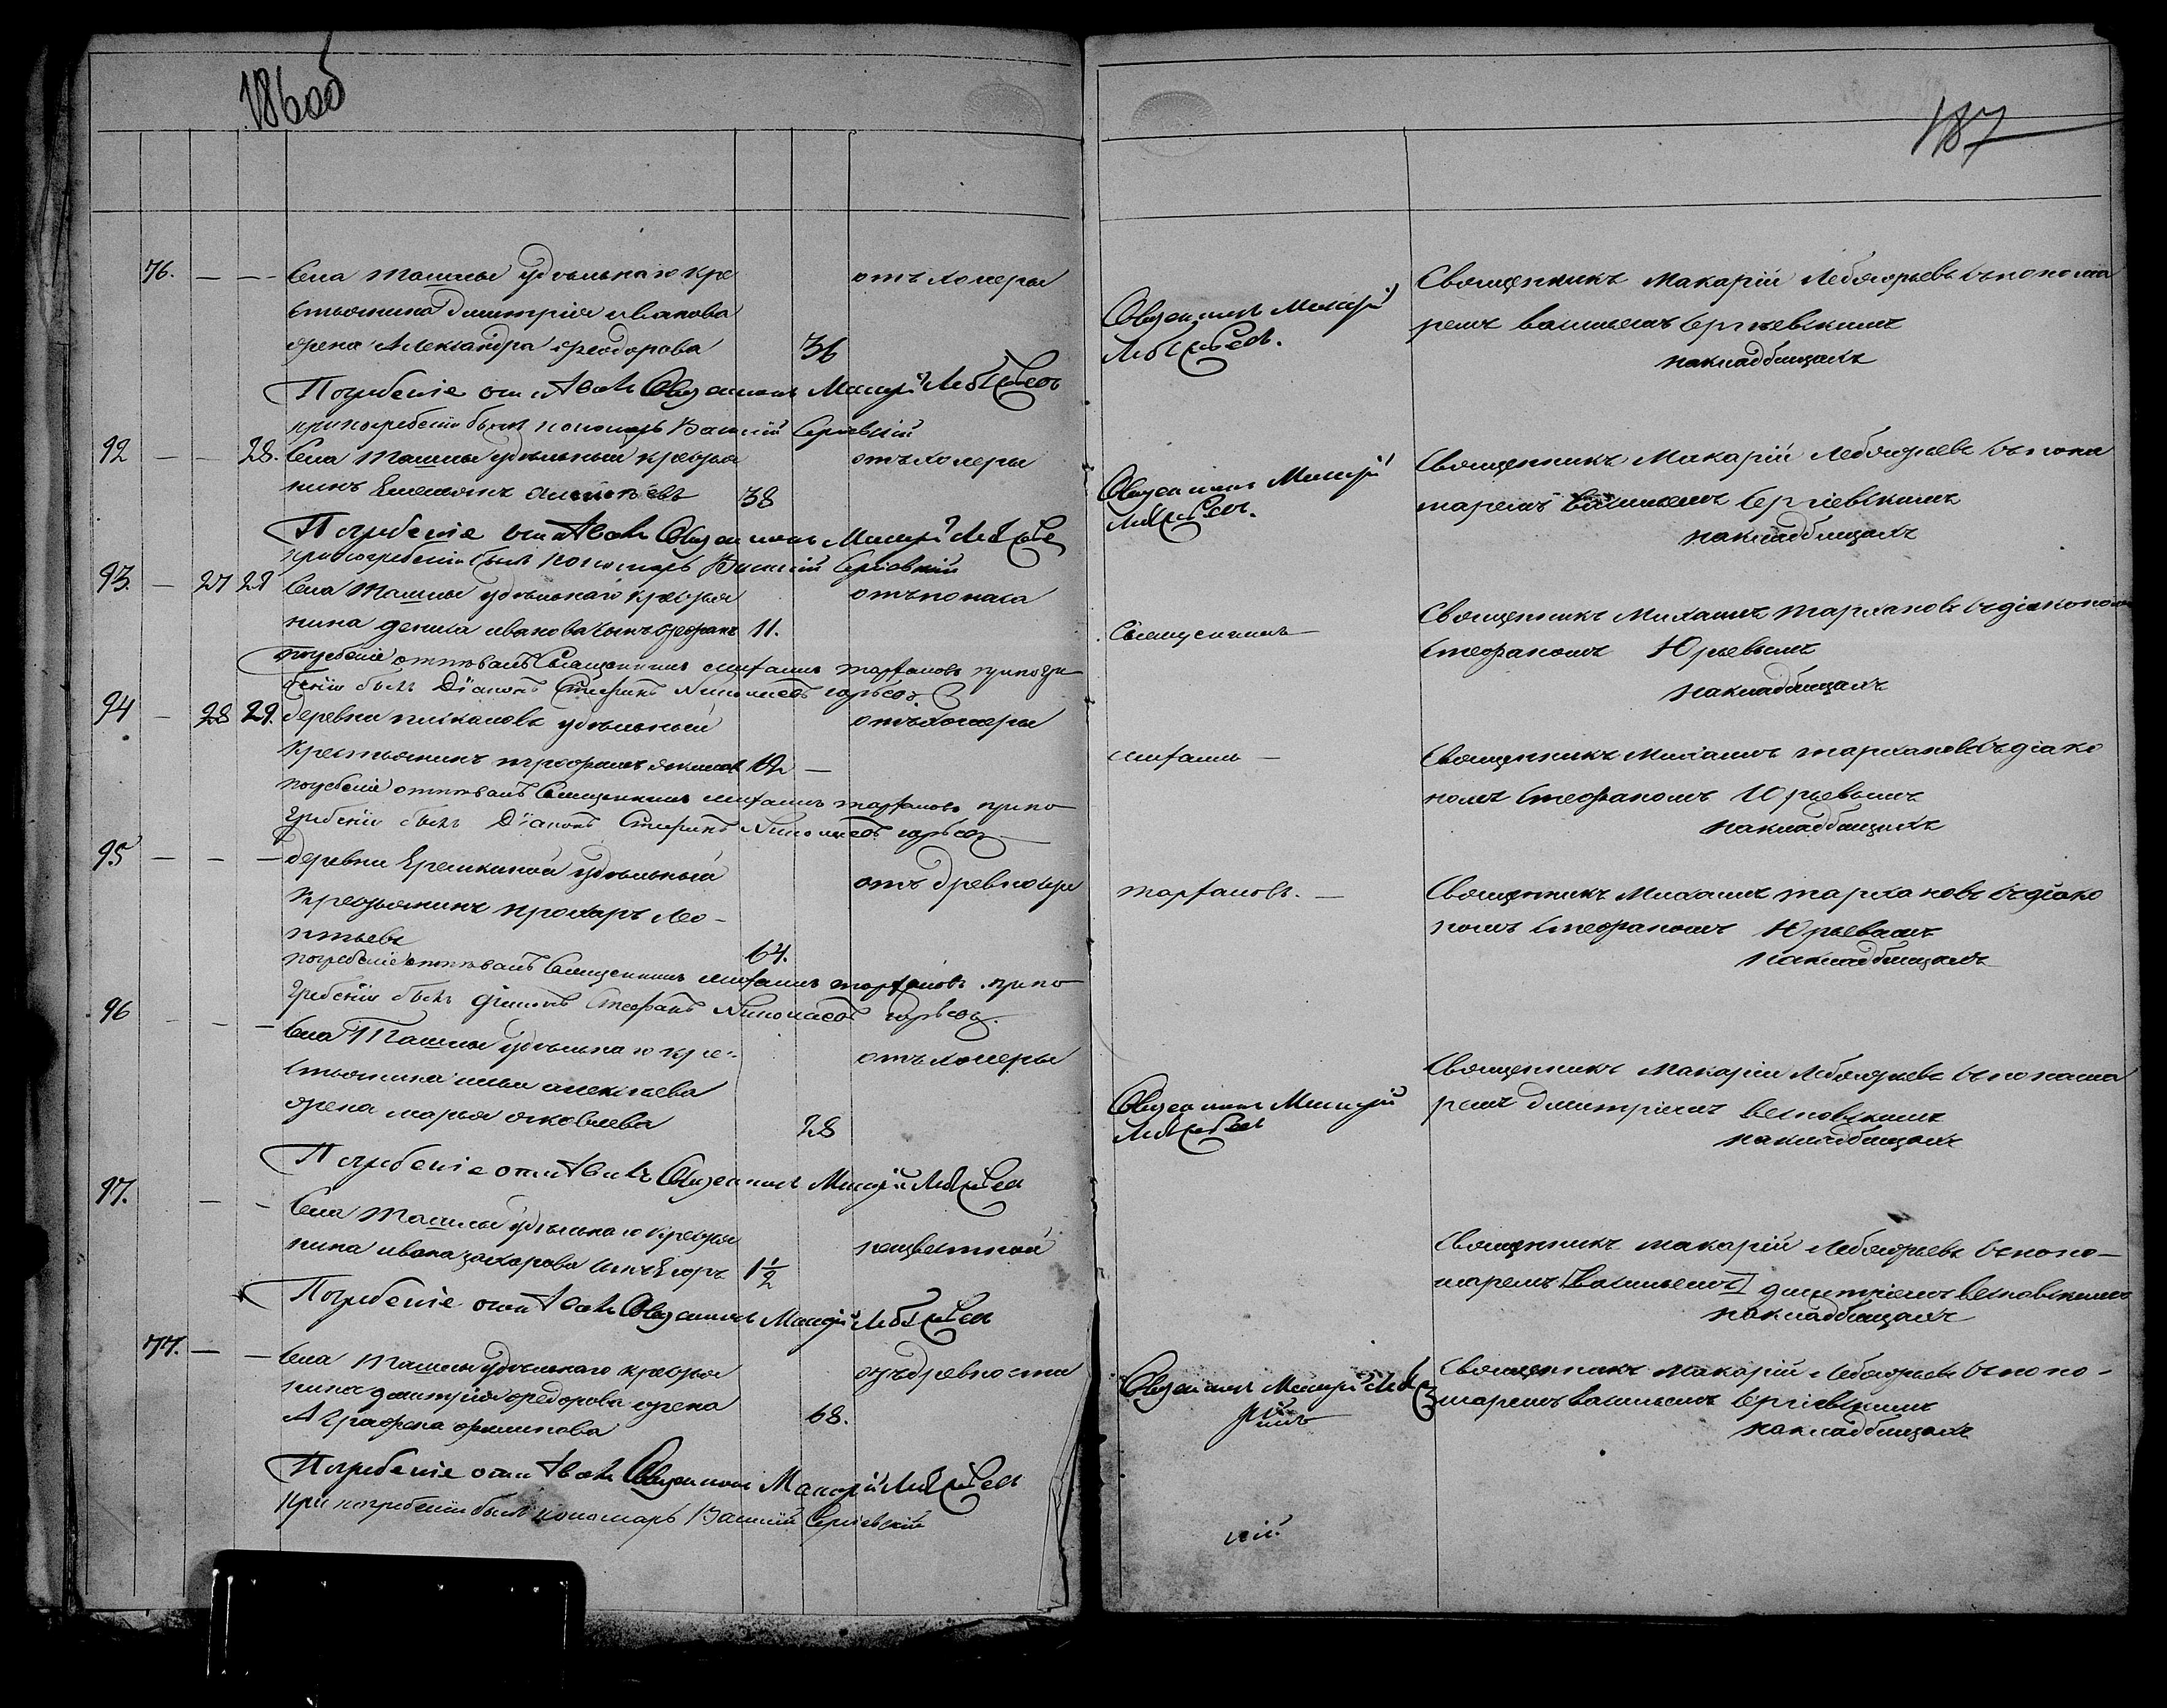 186об
187
76. — — Села Ташлы удѣльнаго кре
стьянина Димитрія Иванова
жена Александра Феодорова 36
отъ холеры
Священникъ Макарій
Лебяжьевъ.
Священникъ Макарій Лебяжьевъ съ понома
ремъ Васильемъ Сергіевскимъ
на кладбищахъ
Погребеніе отпѣвалъ Священникъ Макарій Лебяжьевъ
при погребеніи былъ пономарь Василій Сергіевскій
92 — — 28. Села Ташлы удѣльный крестья
нинъ Емельянъ 38
отъ холеры
Священникъ Макарій
Лебяжьевъ.
Священникъ Макарій Лебяжьевъ съ поно
маремъ Васильемъ Сергіевскимъ
на кладбищахъ
Погребеніе отпѣвалъ Священникъ Макарій Лебяжьев
при погребеніи былъ пономарь Василій Сергіевскій
93. — 27 28 Села Ташлы удѣльнаго крестья
нина Дениса Иванова сынъ Феофанъ 11.
отъ поноса
Священникъ
Священникъ Михаилъ Тархановъ съ діакономъ
Стефаномъ Юрьевымъ
на кладбищахъ
погребеніе отпѣвалъ Священникъ Михаилъ Тархановъ при погре
беніи былъ Діаконъ Стефанъ Николаевъ Юрьевъ
94 — 28 29. деревни удѣльный
крестьянинъ Трофимъ —
отъ холеры
Михаилъ —
Священникъ Михаилъ Тархановъ съ діако
номъ Стефаномъ Юрьевымъ
на кладбищахъ
погребеніе отпѣвалъ Священникъ Михаилъ Тархановъ при по
гребеніи былъ Діаконъ Стефанъ Николаевъ Юрьевъ
95 — — — деревни Еремкиной удѣльный
крестьянинъ Прохоръ Лео-
нтьевъ 64.
отъ древности
Тархановъ. —
Священникъ Михаилъ Тархановъ съ діако
номъ Стефаномъ Юрьевымъ
на кладбищахъ
погребеніе отпѣвалъ Священникъ Михаилъ Тархановъ при по
гребеніи былъ діаконъ Стефанъ Николаевъ Юрьевъ.
96 — — — Села Ташлы удѣльнаго кре-
стьянина Ильи Алексѣева
жена Марья Яковлева 28
отъ холеры
Священникъ Макарій
Лебяжьевъ
Священникъ Макарій Лебяжьевъ съ понома
ремъ Димитріемъ Весновскимъ
на кладбищахъ
Погребеніе отпѣвалъ Священникъ Макарій Лебяжьевъ
97. — — Села Ташлы удѣльнаго крестья
нина Ивана Захарова сынъ Егоръ 1½
неизвестной
Священникъ Макарій Лебяжьевъ съ поно—
маремъ [Васильемъ] Димитріемъ Весновскимъ
на кладбищахъ
Погребеніе отпѣвалъ Священникъ Макарій Лебяжьевъ
77. — — Села Ташлы удѣльнаго крестья
нина Димитрія Федорова жена
Аграфена Филипова 68.
отъ древности
Священникъ Макарій
Священникъ Макарій Лебяжьевъ съ поно-
маремъ Васильемъ Сергіевскимъ
на кладбищахъ
Погребеніе отпѣвалъ Священникъ Макарій Лебяжьевъ
при погребеніи былъ пономарь Василій Сергіевскій